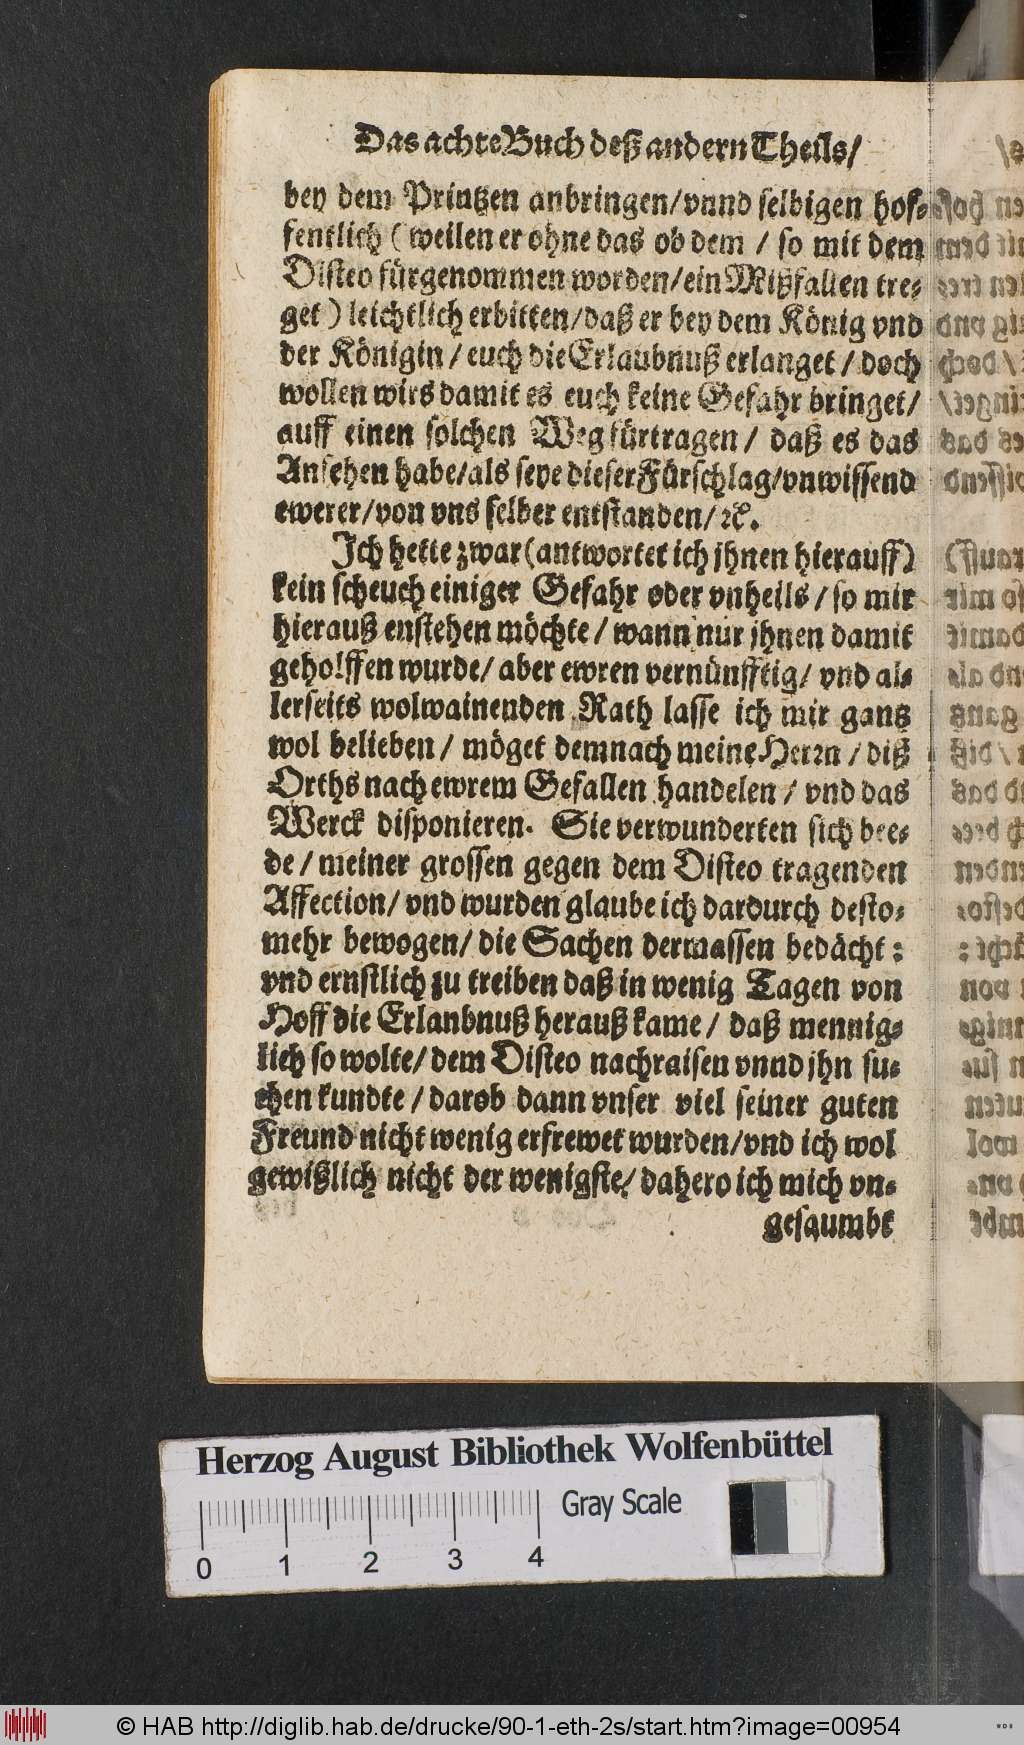 Das achte Buch deß andern Theils/
bey dem Printzen anbringen/vnnd selbigen hof-
fentlich (weilen er ohne das ob dem / so mit dem
Disteo fürgenommen worden/ein Mißfallen tre-
get) leichtlich erbitten/daß er bey dem König vnd
der Königin / euch die Erlaubnuß erlanget / doch
wollen wirs damit es euch keine Gefahr bringet/
auff einen solchen Weg fürtragen / daß es das
Ansehen habe/als seye dieser Fürschlag/vnwissend
ewerer/von vns selber entstanden/ꝛc.
Ich hette zwar (antwortet ich jhnen hierauff)
kein scheuch einiger Gefahr oder vnheils / so mir
hierauß enstehen möchte / wann nur jhnen damit
geholffen wurde/ aber ewren vernünfftig/ vnd al-
lerseits wolwainenden Rath lasse ich mir gantz
wol belieben / möget demnach meine Herrn / diß
Orths nach ewrem Gefallen handelen / vnd das
Werck disponieren. Sie verwunderten sich bee-
de / meiner grossen gegen dem Disteo tragenden
Affection/ vnd wurden glaube ich dardurch desto-
mehr bewogen/ die Sachen dermassen bedächt:
vnd ernstlich zu treiben daß in wenig Tagen von
Hoff die Erlanbnuß herauß kame / daß mennig-
lich so wolte/ dem Disteo nachraisen vnnd jhn su-
chen kundte / darob dann vnser viel seiner guten
Freund nicht wenig erfrewet wurden/vnd ich wol
gewißlich nicht der wenigste/ dahero ich mich vn-
gesaumbt
Herzog August Bibliothek Wolfenbüttel
Gray Scale
0 1 2 3 4
© HAB http://diglib.hab.de/drucke/90-1-eth-2s/start.htm?image=00954